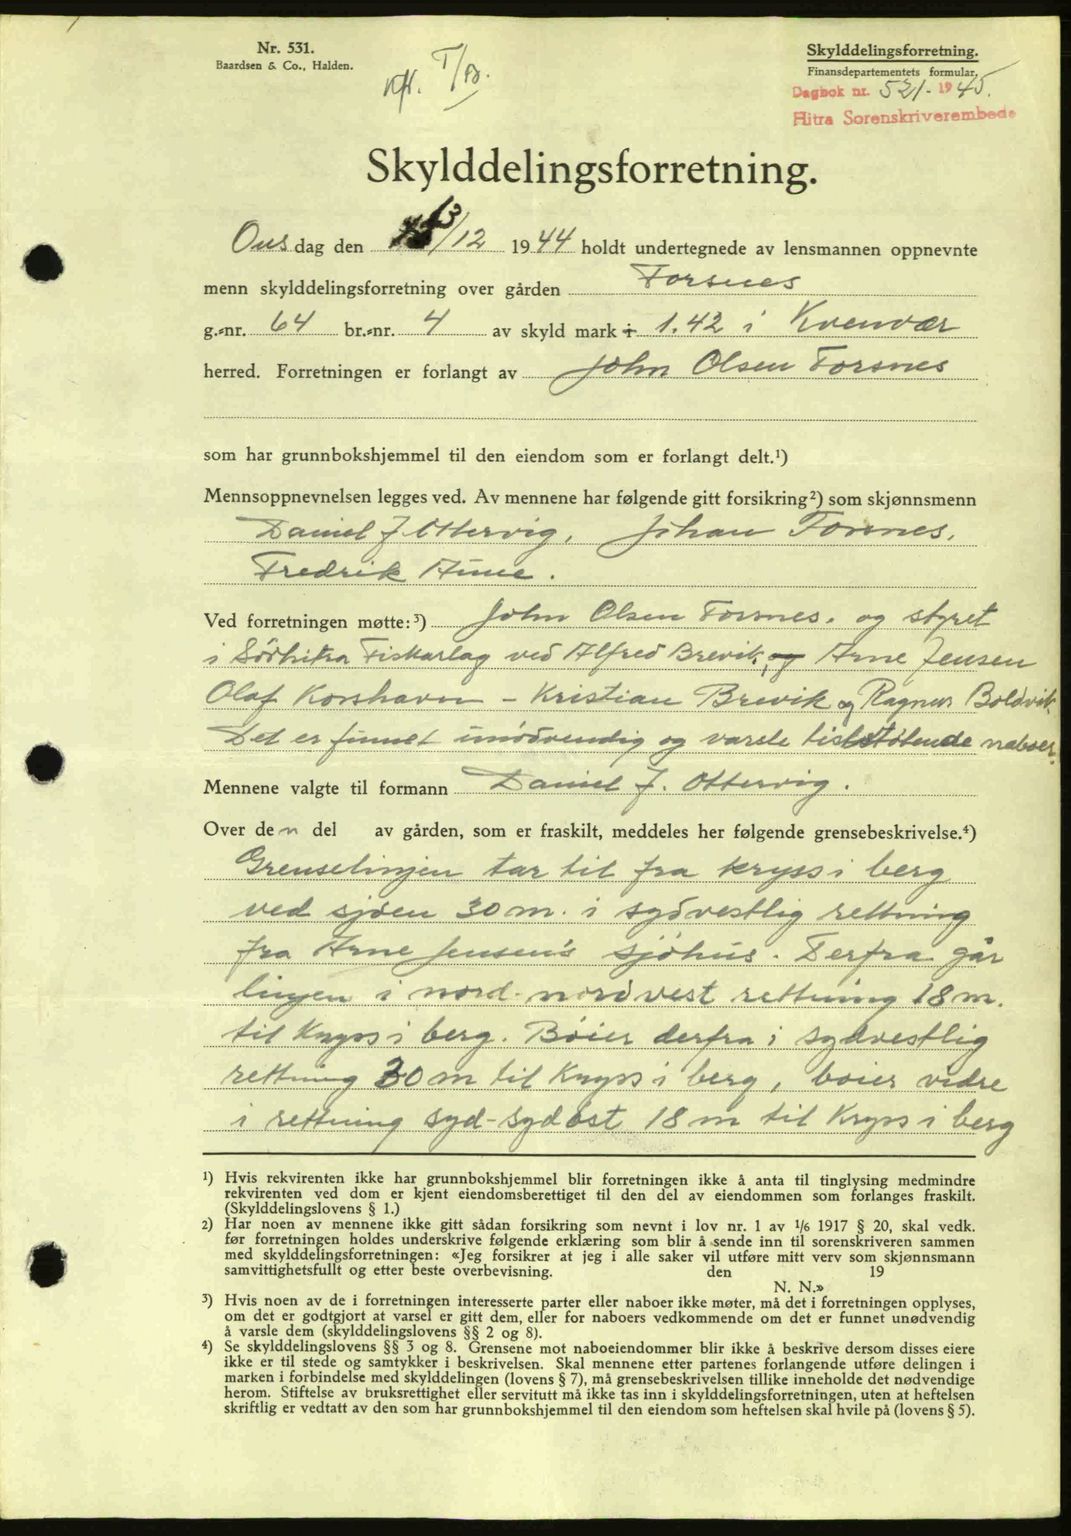 Nr. 531.
Baardsen & Co., Halden.
Skylddelingsforretning.
Finansdepartementets formular.
Dagbok nr. 521 - 1945.
Hitra Sorenskriverembede
Skylddelingsforretning.
Onsdag den 13/12 1944 holdt undertegnede av lensmannen oppnevnte
menn skylddelingsforretning over gården Forsnes
g.-nr. 64 br.-nr. 4 av skyld mark 1.42 i Kvenvær
herred. Forretningen er forlangt av John Olsen Forsnes
som har grunnbokshjemmel til den eiendom som er forlangt delt.¹)
Mennsoppnevnelsen legges ved. Av mennene har følgende gitt forsikring²) som skjønnsmenn
Daniel J. Ottervig, Johan Forsnes,
Fredrik Aune.
Ved forretningen møtte:³) John Olsen Forsnes. og styret
i Sörhitra Fiskarlag ved Alfred Brevik, Arne Jensen
Olaf Korshavn - Kristian Brevik og Ragnar Boldvik.
Det er funnet unödvendig og varsle tilstötende naboer.
Mennene valgte til formann Daniel J. Ottervig.
Over den del av gården, som er fraskilt, meddeles her følgende grensebeskrivelse.⁴)
Grenselinjen tar til fra kryss i berg
ved sjöen 30 m. i sydvestlig rettning
fra Arne Jensen's sjöhus. Derfra går
linjen i nord-nordvest rettning 18 m.
til Kryss i berg. Böier derfra i sydvestlig
rettning 30 m til Kryss i berg, boier vidre
i rettning syd-sydöst 18 m til Kryss i berg
¹) Hvis rekvirenten ikke har grunnbokshjemmel blir forretningen ikke å anta til tinglysing medmindre
rekvirenten ved dom er kjent eiendomsberettiget til den del av eiendommen som forlanges fraskilt.
(Skylddelingslovens § 1.)
²) Har noen av mennene ikke gitt sådan forsikring som nevnt i lov nr. 1 av 1/6 1917 § 20, skal vedk.
før forretningen holdes underskrive følgende erklæring som blir å sende inn til sorenskriveren sammen
med skylddelingsforretningen: «Jeg forsikrer at jeg i alle saker vil utføre mitt verv som skjønnsmann
samvittighetsfullt og etter beste overbevisning. den 19
N. N.»
³) Hvis noen av de i forretningen interesserte parter eller naboer ikke møter, må det i forretningen opplyses,
om det er godtgjort at varsel er gitt dem, eller for naboers vedkommende om det er funnet unødvendig
å varsle dem (skylddelingslovens §§ 2 og 8).
⁴) Se skylddelingslovens §§ 3 og 8. Grensene mot naboeiendommer blir ikke å beskrive dersom disses eiere
ikke er til stede og samtykker i beskrivelsen. Skal mennene etter partenes forlangende utføre delingen i
marken i forbindelse med skylddelingen (lovens § 7), må grensebeskrivelsen tillike inneholde det nødvendige
herom. Stiftelse av bruksrettighet eller servitutt må ikke tas inn i skylddelingsforretningen, uten at heftelsen
skriftlig er vedtatt av den som har grunnbokshjemmel til den eiendom som heftelsen skal hvile på (lovens § 5).